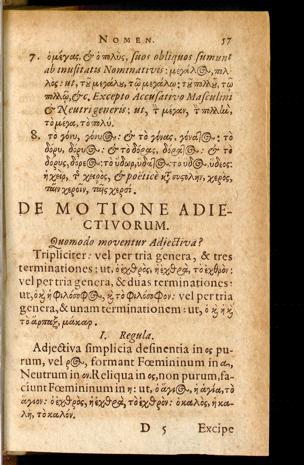 NOMEN. 57
7. ὁ μέγας, & ὁ πολὺς, suos obliquos sumunt
ab inusitatis Nominativis: μεγάλος, πολ-
λός: ut, τȣ͂ μεγάλȣ, τῷ μεγάλῳ: τȣ͂ πολλȣ͂, τῷ
πολλῷ, &c. Excepto Accusativo Masculini
& Neutri generis: ut, τ̀ μέγαν, τ̀ πολὺν,
τὸ μέγα, τὸ πολύ.
8. τὸ γόνυ, γόνυος: & τὸ γόνας, γόνατος: τὸ
δόρυ, δόρυος: & τὸ δόρας, δόρατος: & τὸ
δόρυς, δόρεος: τὸ ὕδωρ, ὕδατος: τὸ ὕδος, ὕδεος:
ἡ χεὶρ, τ̃ χειρὸς, & poëticè χτ̀ συστολὴν, χερὸς,
τοῖν χεροῖν, ταῖς χερσί.
DE MOTIONE ADIE-
CTIVORUM.
Quomodo moventur Adjectiva?
Tripliciter: vel per tria genera, & tres
terminationes: ut, ὁ ἐχθρὸς, ἡ ἐχθρὰ, τὸ ἐχθρόν:
vel per tria genera, & duas terminationes:
ut, ὁ κ̀ ἡ φιλόσοφος, κ̀ τὸ φιλόσοφον: vel per tria
genera, & unam terminationem: ut, ὁ κ̀ ἡ κ̀
τὸ ἅρπαξ, μάκαρ.
I. Regula.
Adjectiva simplicia desinentia in ος pu-
rum, vel ρος, formant Fœmininum in α,
Neutrum in ον. Reliqua in ος, non purum, fa-
ciunt Fœmininum in η: ut, ὁ ἅγιος, ἡ ἁγία, τὸ
ἅγιον: ὁ ἐχθρὸς, ἡ ἐχθρὰ, τὸ ἐχθρόν: ὁ καλὸς, ἡ κα-
λὴ, τὸ καλόν.
D 5 Excipe